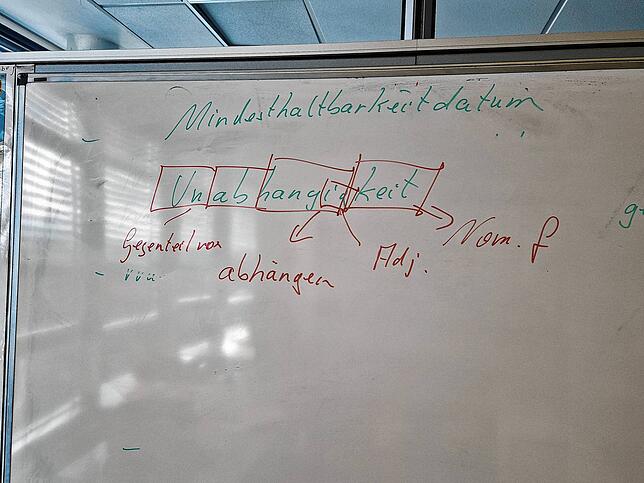 Mindesthaltbarkeitdatum
Unabhangigkeit
Gegenteil von
abhängen
Adj.
Nom. f